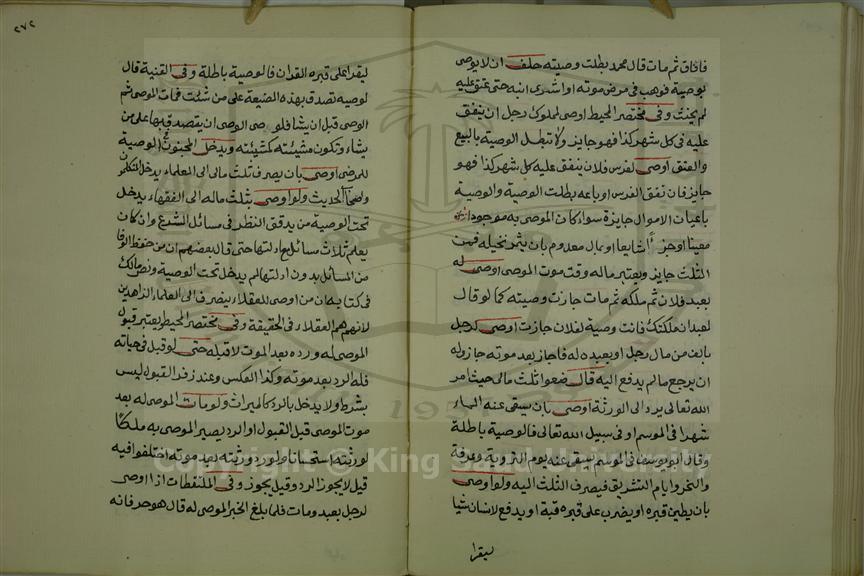 فافاق ثم مات قال محمد بطلت وصيته حلف ان لا يوصى
بوصية فوهب فى مرض موته او اشترى ابنه حتى عتق عليه
لم يحنث وفى مختصر المحيط اوصى لمملوك رجل ان ينفق
عليه فى كل شهر كذا فهو جايز ولا تبطل الوصية بالبيع
والعتق اوصى لفرس فلان ينفق عليه كل شهر كذا فهو
جايز فان نفق الفرس او باعه بطلت الوصية والوصية
باعيان الاموال جايزة سوا كان الموصى به موجودا
معينا او جزءًا شايعا او بمال معدوم بان يثمر نخيله فمن
الثلث جايز ويعتبر ماله وقت موت الموصى اوصى له
بعبد فلان ثم ملكه ثم مات جازت وصيته كما لو قال
لعبد ان ملكتك فانت وصية لفلان جازت اوصى لرجل
بالف من مال رجل او بعبده له فاجاز بعد موته جاز وله
ان يرجع ما لم يدفع اليه قال ضعوا ثلث مالى حيث امر
الله تعالى يرد الى الورثة اوصى بان يسقى عنه الماء
شهرا فى الموسم او فى سبيل الله تعالى فالوصية باطلة
وقال ابو يوسف فى الموسم يسقى عنه يوم التروية وعرفة
والنحر وايام التشريق فيصرف الثلث اليه ولو اوصى
بان يطين قبره او يضرب على قبره قبة او يدفع لانسان شيا
ليقرا
٢٧٢
ليقرا على قبره القران فالوصية باطلة وفى القنية قال
لوصيه تصدق بهذه الضيعة على من شئت فمات الموصى ثم
الوصى قبل ان يشا فلوصى الوصى ان يتصدق بها على من
يشاء وتكون مشيئته كمشيئته ويدخل المجنون الوصية
للمرضى اوصى بان يصرف ثلث مالى الى العلماء يدخل المتكلمون
واصحاب الحديث ولو اوصى بثلث ماله الى الفقهاء يدخل
تحت الوصية من يدقق النظر فى مسائل الشرع وان كان
يعلم ثلاث مسائل مع ادلتها حتى قال بعضهم ان من حفظ الوفا
من المسائل بدون ادلتها لم يدخل تحت الوصية ونص مالك
فى كتابه ان من اوصى للعقلاء يصرف الى العلماء الزاهدين
لانهم هم العقلاء فى الحقيقة وفى مختصر المحيط يعتبر قبول
الموصى له ورده بعد الموت لا قبله حتى لو قبل فى حياته
فله الرد بعد موته وكذا العكس وعند زفر القبول ليس
بشرط ولا يدخل بالرد كالميراث ولو مات الموصى له بعد
موت الموصى قبل القبول او الرد يصير الموصى به ملكا
لورثته استحسانا ولو رد ورثته بعد موته اختلفوا فيه
قيل لا يجوز الرد وقيل يجوز وفى الملتقطات اذا اوصى
لرجل بعبد ومات فلما بلغ الخبر الموصى له قال هو حر فانه